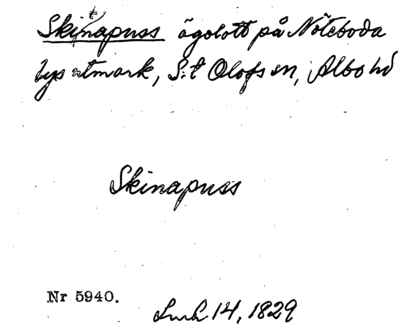 Skinapuss ägolott på Nöteboda
bys utmark, S:t Olofs sn, Albo hd
Skinapuss
Nr 5940.
Lmh 14, 1829